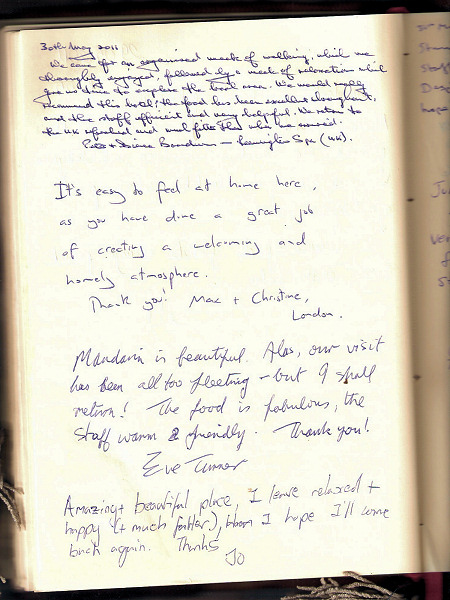 30th May 2011
We came for an organised week of walking, which we
thoroughly enjoyed, followed by a week of relaxation which
gave us time to explore the local area. We would really
recommend this hotel; the food has been excellent throughout,
and the staff efficient and very helpful. We return to
the UK refreshed and much fitter than when we arrived.
Peter + Leamington Spa (UK).
It's easy to feel at home here,
as you have done a great job
of creating a welcoming and
homely atmosphere.
Thank you! Max + Christine,
London.
Mandarin is beautiful. Alas, our visit
has been all too fleeting - but I shall
return! The food is fabulous, the
staff warm & friendly. Thank you!
Eve Turner
Amazing + beautiful place, I leave relaxed +
happy (+ much fatter), I hope I'll come
back again. Thanks
Jo